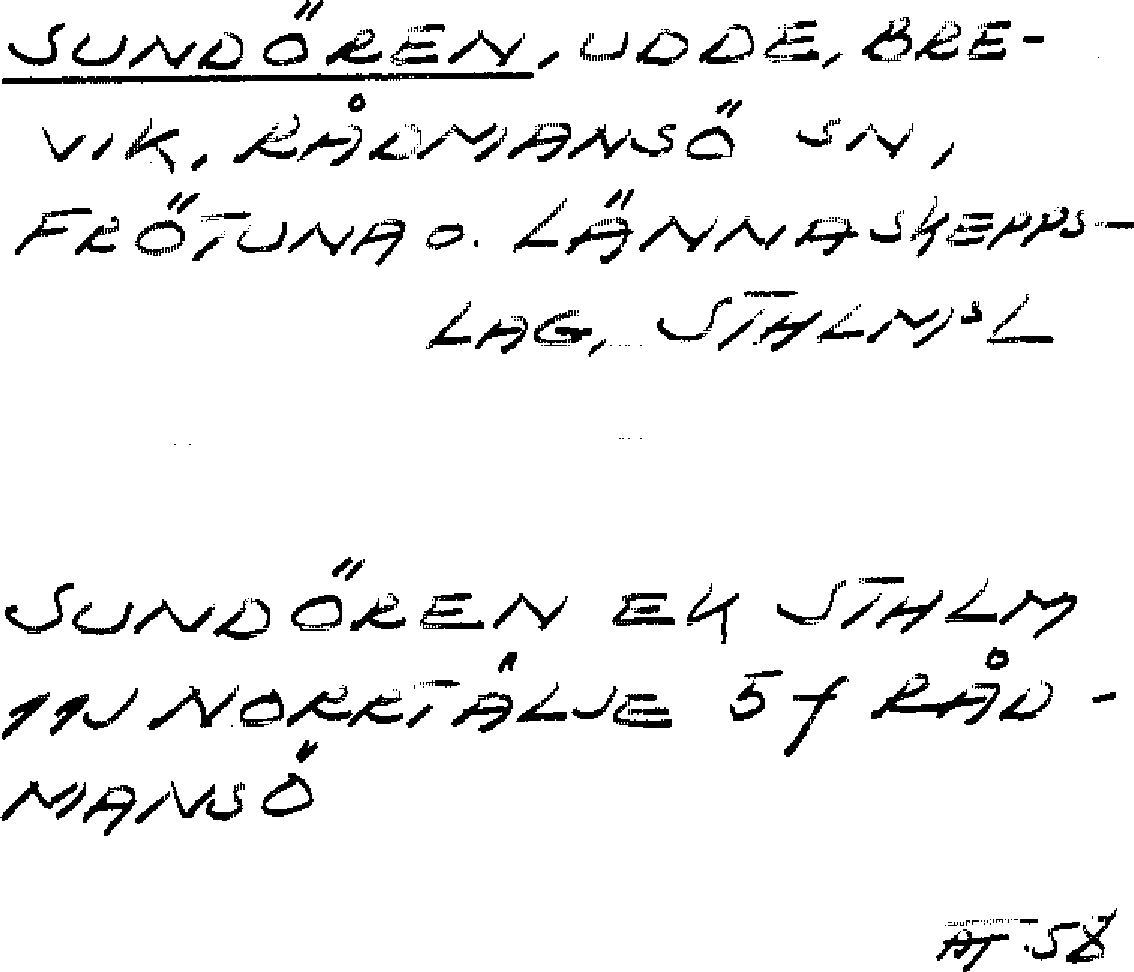 SUNDÖREN, UDDE, BRE-
VIK, RÅDMANSÖ SN,
FRÖTUNA O. LÄNNA SKEPPS-
LAG, STHLMSL
SUNDÖREN EK STHLM
11J NORRTÄLJE 5f RÅD-
MANSÖ
AT 58